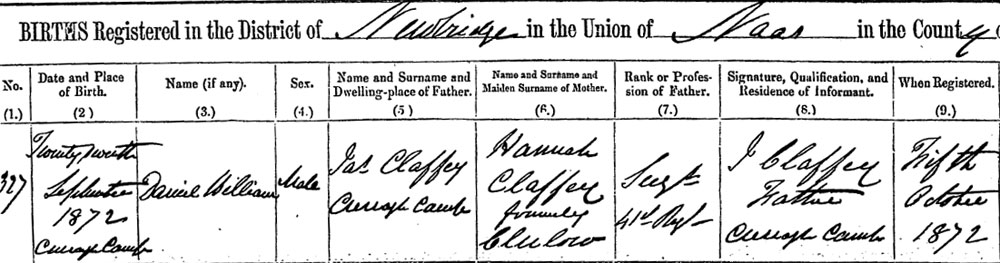 BIRTHS Registered in the District of Newbridge in the Union of Naas in the County
No. Date and Place of Birth. Name (if any). Sex. Name and Surname and Dwelling-place of Father. Name and Surname and Maiden Surname of Mother. Rank or Profession of Father. Signature, Qualification, and Residence of Informant. When Registered.
(1.) (2) (3.) (4.) (5) (6.) (7.) (8.) (9.)
327
September
1872
Curragh Camp
Daniel William
Male
Jas Claffey
Curragh Camp
Hannah
Claffey
formerly
Clulow
Sergt
41st Regt
J Claffey
Father
Curragh Camp
Fifth
October
1872